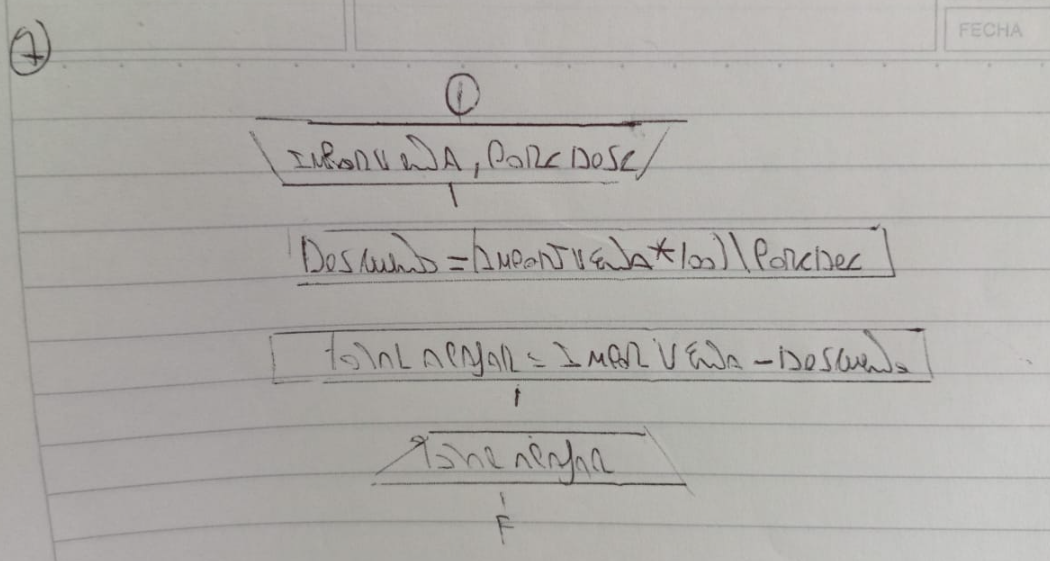 7
FECHA
I
IMPORVENTA, PORCDESC
Descuento=(IMPORTVENTA*100)\PORCDEC
total apagar = IMPORVENTA - DEScuento
F